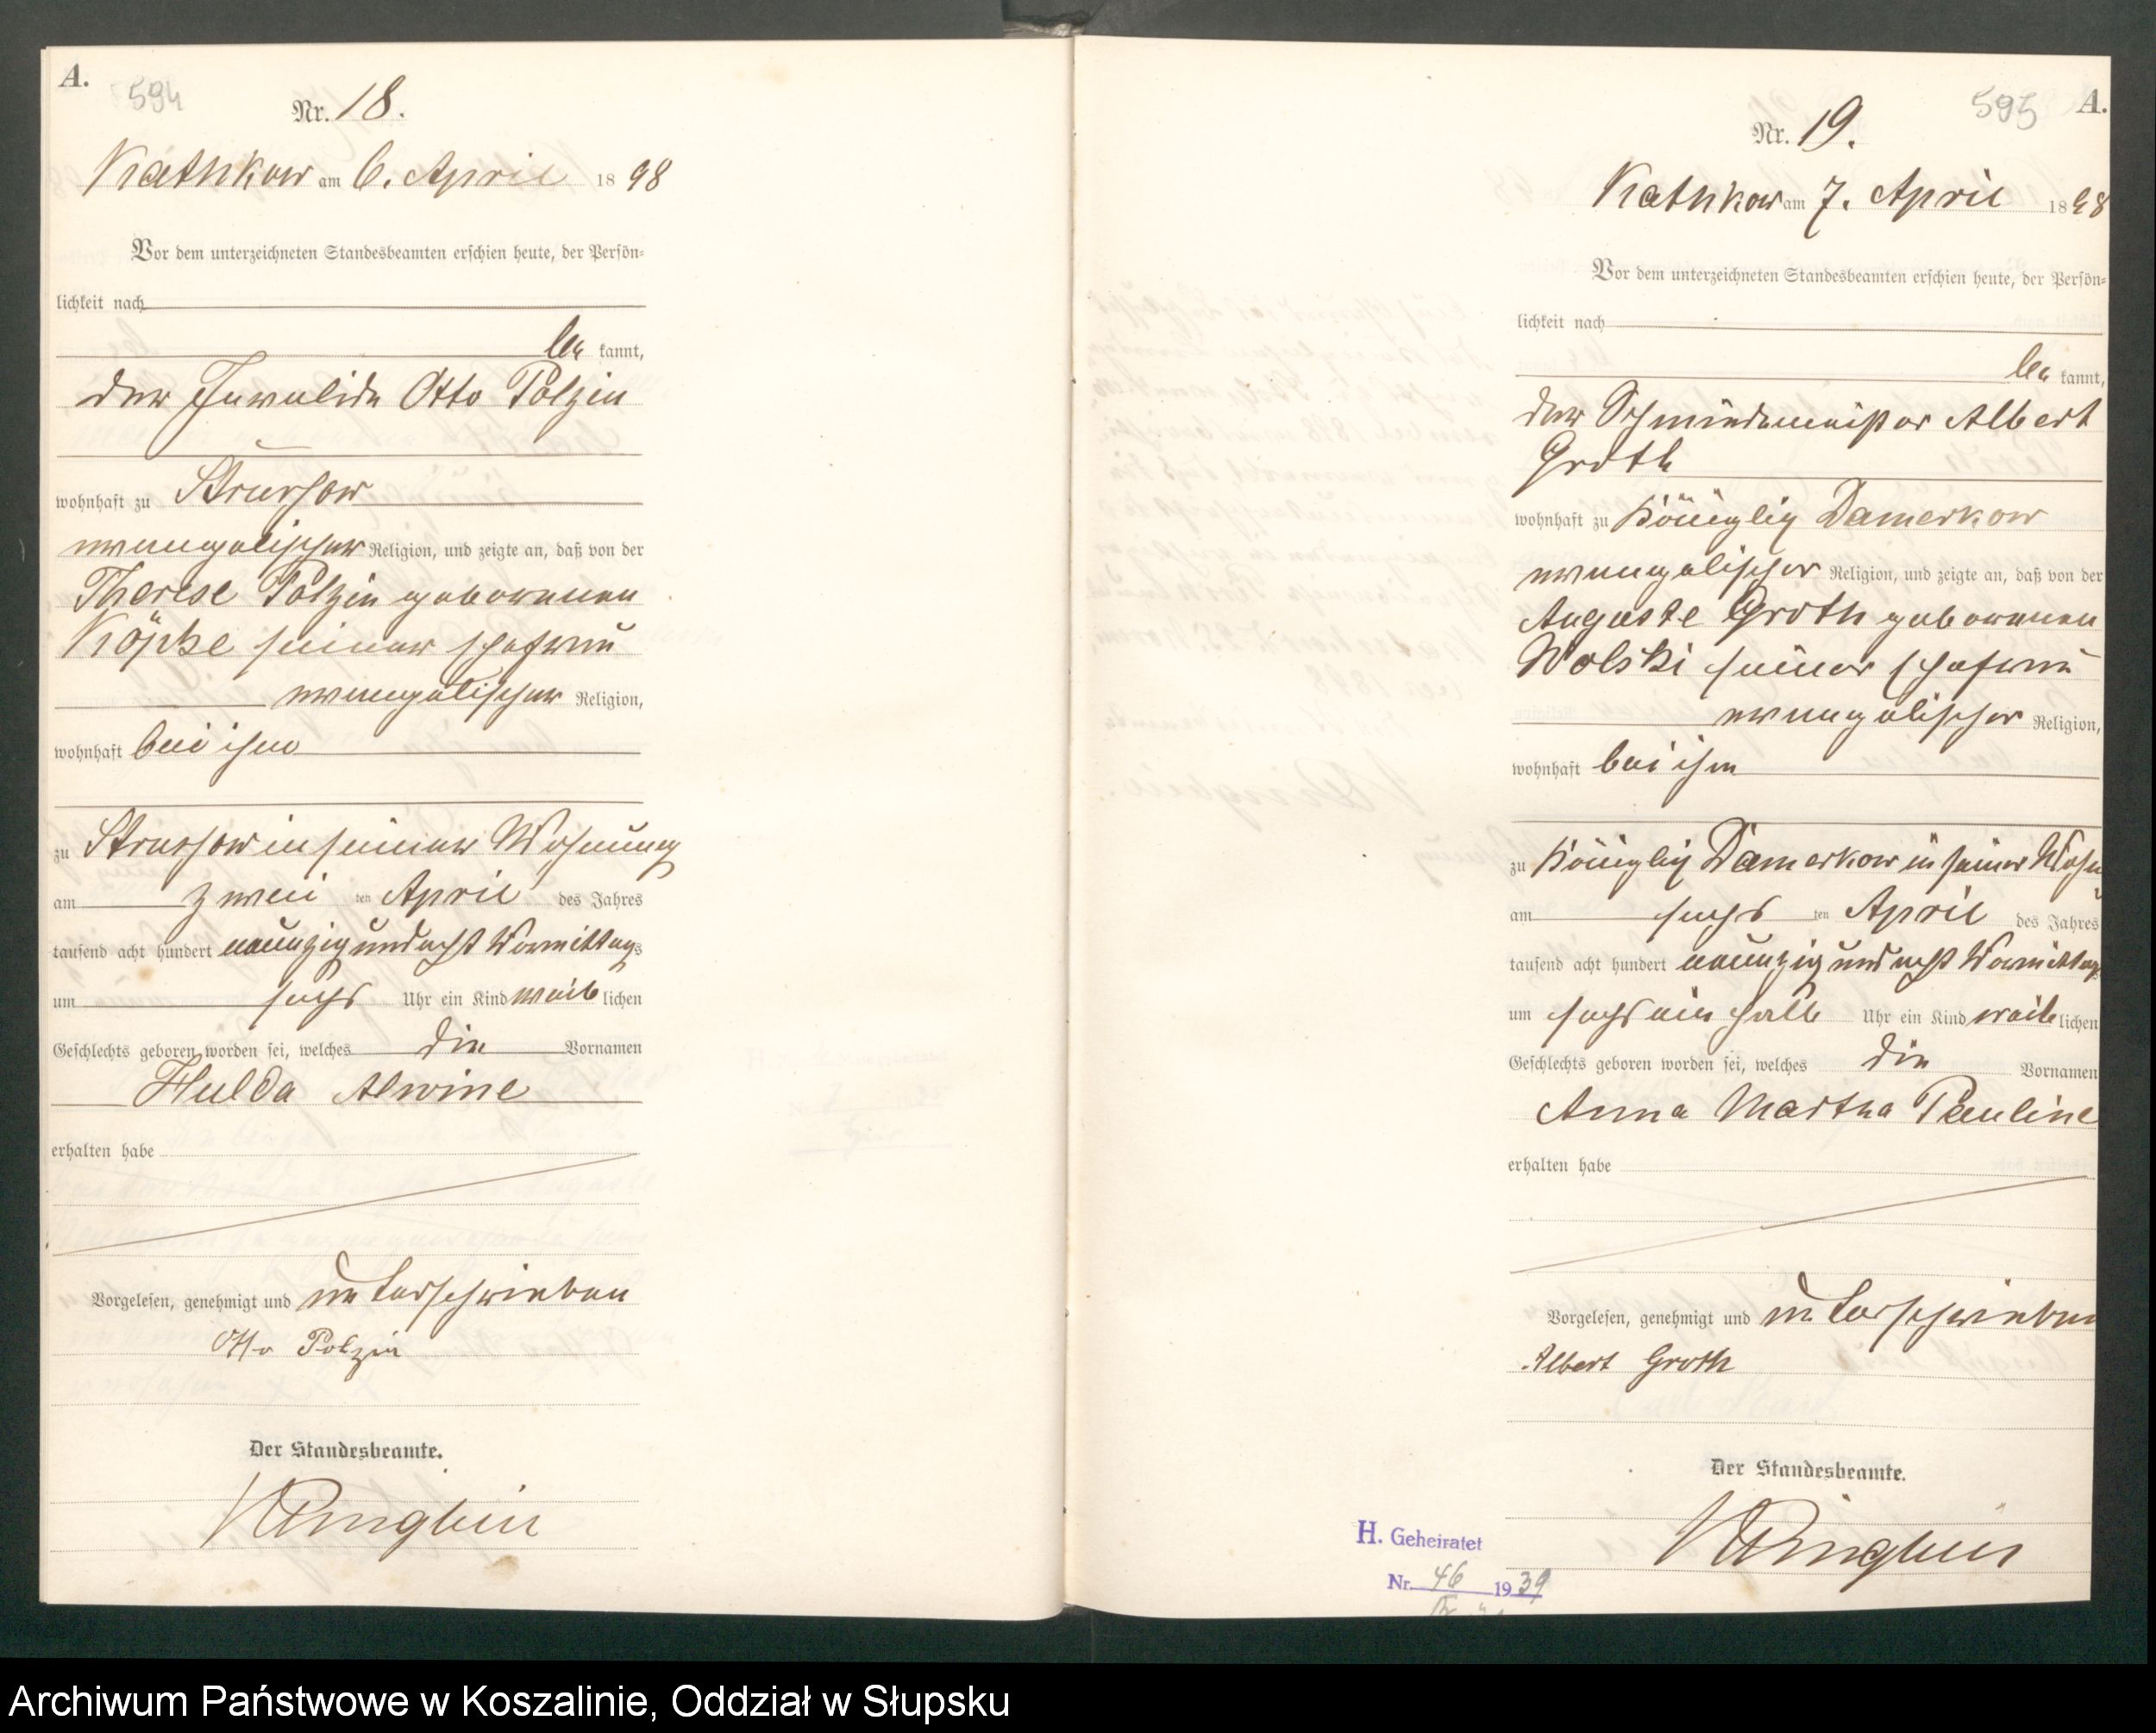 A.
594
Nr. 18.
Kathkow am 6. April 1898
Vor dem unterzeichneten Standesbeamten erschien heute, der Persön-
lichkeit nach
be kannt,
der Invalide Otto Polzin
wohnhaft zu Strussow
evangelischer Religion, und zeigte an, daß von der
Therese Polzin geborenen
Köpke seiner Ehefrau
evangelischer Religion,
wohnhaft bei ihm
zu Strussow in seiner Wohnung
am zwei ten April des Jahres
tausend acht hundert neunzig und acht Vormittags
um sechs Uhr ein Kind weib lichen
Geschlechts geboren worden sei, welches die Vornamen
Hulda Alwine
erhalten habe
Vorgelesen, genehmigt und unterschrieben
Otto Polzin
Der Standesbeamte.
A.
595
Nr. 19.
Kathkow am 7. April 1898
Vor dem unterzeichneten Standesbeamten erschien heute, der Persön-
lichkeit nach
be kannt,
der Schmiedemeister Albert
Groth
wohnhaft zu Königlich Damerkow
evangelischer Religion, und zeigte an, daß von der
Auguste Groth geborenen
Wolski seiner Ehefrau
evangelischer Religion,
wohnhaft bei ihm
zu Königlich Damerkow in seiner
am sechs ten April des Jahres
tausend acht hundert neunzig und acht Vormittags
um sechs ein halb Uhr ein Kind weib lichen
Geschlechts geboren worden sei, welches die Vornamen
Anna Martha Pauline
erhalten habe
Vorgelesen, genehmigt und unterschrieben
Albert Groth
Der Standesbeamte.
H. Geheiratet
Nr. 46 1939
Archiwum Państwowe w Koszalinie, Oddział w Słupsku